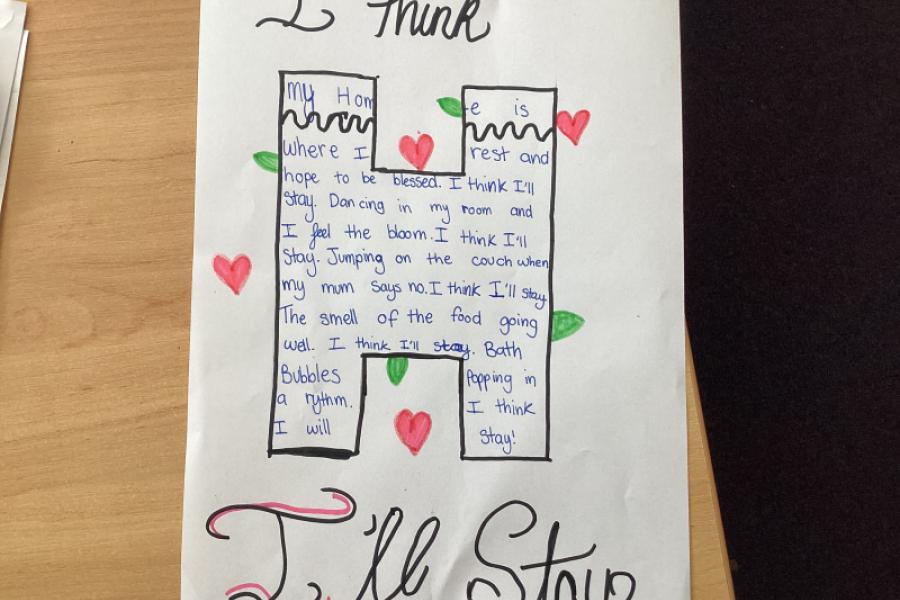 I Think
my Home is
where I rest and
hope to be blessed. I think I'll
stay. Dancing in my room and
I feel the bloom. I think I'll
stay. Jumping on the couch when
my mum says no. I think I'll stay
The smell of the food going
well. I think I'll stay. Bath
Bubbles Popping in
a rythm. I think
I will stay!
I'll Stay